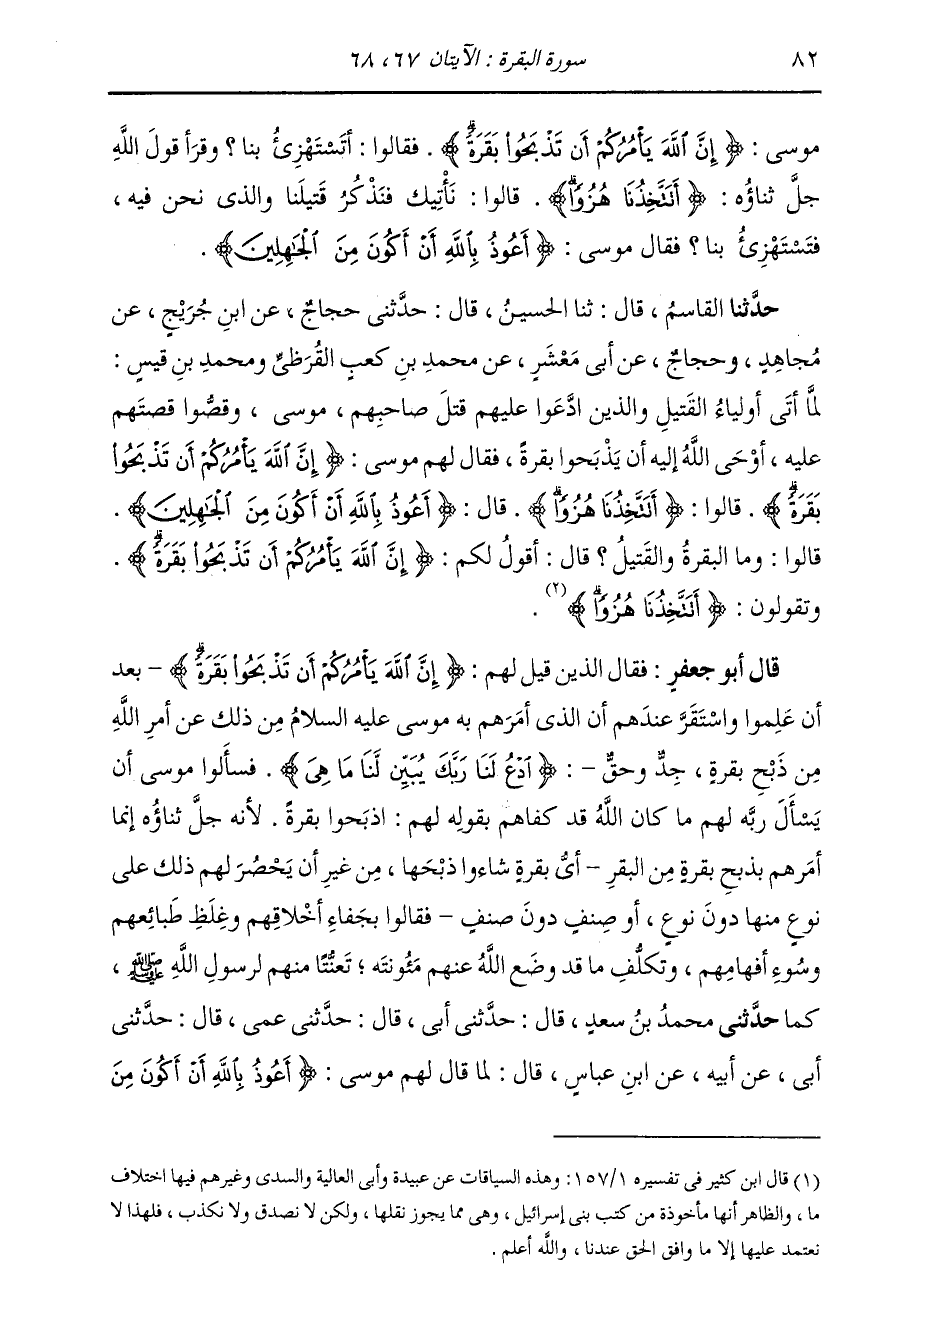 ٨٢ سورة البقرة : الآيتان ٦٧، ٦٨
موسى : ﴿ إِنَّ ٱللَّهَ يَأْمُرُكُمْ أَن تَذْبَحُوا۟ بَقَرَةًۖ ﴾ . فقالوا : أتَسْتَهْزِئُ بنا ؟ وقرَأ قولَ اللَّهِ
جلَّ ثناؤُه : ﴿ أَتَتَّخِذُنَا هُزُوًاۖ ﴾ . قالوا : نَأْتِيك فنَذْكُرُ قَتيلَنا والذى نحن فيه ،
فتَسْتَهْزِئُ بنا ؟ فقال موسى : ﴿ أَعُوذُ بِٱللَّهِ أَنْ أَكُونَ مِنَ ٱلْجَٰهِلِينَ ﴾ .
حدَّثنا القاسمُ ، قال : ثنا الحسينُ ، قال : حدَّثنى حجاجٌ ، عن ابنِ جُرَيْجٍ ، عن
مُجاهِدٍ ، وحجاجٌ ، عن أبى مَعْشَرٍ ، عن محمدِ بنِ كعبٍ القُرَظىِّ ومحمدِ بنِ قيسٍ :
لمَّا أتَى أولياءُ القَتيلِ والذين ادَّعَوا عليهم قتلَ صاحبِهم ، موسى ، وقصُّوا قصتَهم
عليه ، أوْحَى اللَّهُ إليه أن يَذْبَحوا بقرةً ، فقال لهم موسى : ﴿ إِنَّ ٱللَّهَ يَأْمُرُكُمْ أَن تَذْبَحُوا۟
بَقَرَةًۖ ﴾ . قالوا : ﴿ أَتَتَّخِذُنَا هُزُوًاۖ ﴾ . قال : ﴿ أَعُوذُ بِٱللَّهِ أَنْ أَكُونَ مِنَ ٱلْجَٰهِلِينَ ﴾ .
قالوا : وما البقرةُ والقَتيلُ ؟ قال : أقولُ لكم : ﴿ إِنَّ ٱللَّهَ يَأْمُرُكُمْ أَن تَذْبَحُوا۟ بَقَرَةًۖ ﴾ .
وتقولون : ﴿ أَتَتَّخِذُنَا هُزُوًاۖ ﴾(٢) .
قال أبو جعفرٍ : فقال الذين قيل لهم : ﴿ إِنَّ ٱللَّهَ يَأْمُرُكُمْ أَن تَذْبَحُوا۟ بَقَرَةًۖ ﴾ - بعد
أن عَلِموا واسْتَقَرَّ عندَهم أن الذى أمَرَهم به موسى عليه السلامُ مِن ذلك عن أمرِ اللَّهِ
مِن ذَبْحِ بقرةٍ ، جِدٌّ وحقٌّ - : ﴿ ٱدْعُ لَنَا رَبَّكَ يُبَيِّن لَّنَا مَا هِىَ ﴾ . فسأَلوا موسى أن
يَسْأَلَ ربَّه لهم ما كان اللَّهُ قد كفاهم بقولِه لهم : اذبَحوا بقرةً . لأنه جلَّ ثناؤُه إنما
أمَرهم بذبحِ بقرةٍ مِن البقرِ - أىُّ بقرةٍ شاءوا ذبْحَها ، مِن غيرِ أن يَحْصُرَ لهم ذلك على
نوعٍ منها دونَ نوعٍ ، أو صِنفٍ دونَ صنفٍ - فقالوا بجَفاءِ أخْلاقِهم وغِلَظِ طَبائعِهم
وسُوءِ أفهامِهم ، وتكلُّفِ ما قد وضَع اللَّهُ عنهم مَئُونتَه ؛ تَعنُّتًا منهم لرسولِ اللَّهِ ﷺ ،
كما حدَّثنى محمدُ بنُ سعدٍ ، قال : حدَّثنى أبى ، قال : حدَّثنى عمى ، قال : حدَّثنى
أبى ، عن أبيه ، عن ابنِ عباسٍ ، قال : لما قال لهم موسى : ﴿ أَعُوذُ بِٱللَّهِ أَنْ أَكُونَ مِنَ
(١) قال ابن كثير فى تفسيره ١٥٧/١ : وهذه السياقات عن عبيدة وأبى العالية والسدى وغيرهم فيها اختلاف
ما ، والظاهر أنها مأخوذة من كتب بنى إسرائيل ، وهى مما يجوز نقلها ، ولكن لا نصدق ولا نكذب ، فلهذا لا
نعتمد عليها إلا ما وافق الحق عندنا ، واللَّه أعلم .